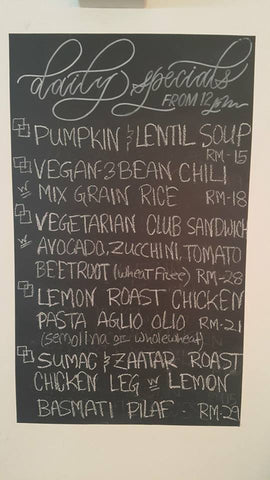 daily specials
FROM 12pm
PUMPKIN & LENTIL SOUP
RM-15
VEGAN-3 BEAN CHILI
w MIX GRAIN RICE RM-18
VEGETARIAN CLUB SANDWICH
w AVOCADO, ZUCCHINI, TOMATO
BEETROOT (wheat Free) RM-28
LEMON ROAST CHICKEN
PASTA AGLIO OLIO RM-21
(semolina or wholewheat)
SUMAC & ZAATAR ROAST
CHICKEN LEG w LEMON
BASMATI PILAF - RM-29